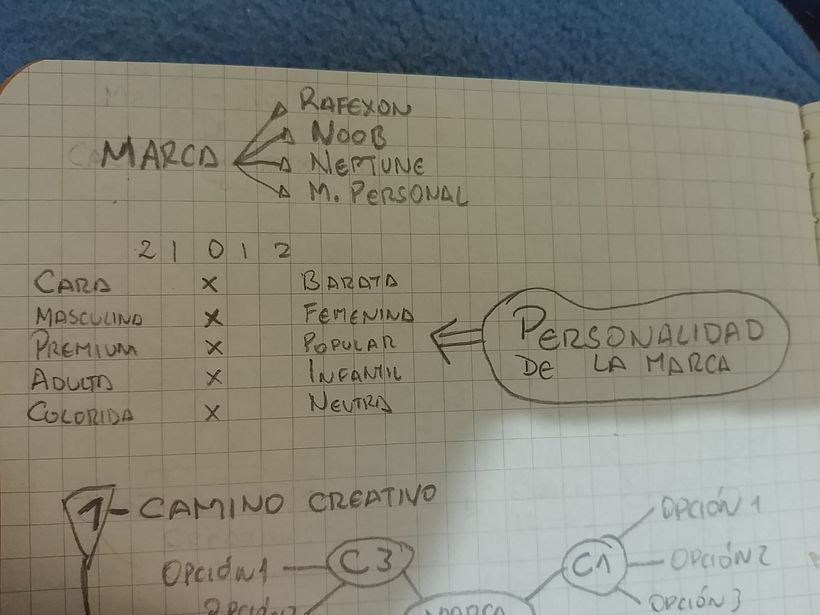 MARCA
RAFEXON
NOOB
NEPTUNE
M. PERSONAL
2 1 0 1 2
CARA X BARATA
MASCULINA X FEMENINA
PREMIUM X POPULAR
ADULTA X INFANTIL
COLORIDA X NEUTRA
PERSONALIDAD
DE LA MARCA
1- CAMINO CREATIVO
OPCIÓN 1
C3
OPCIÓN 1
C1
OPCIÓN 2
OPCIÓN 3
OPCIÓN 2
MARCA